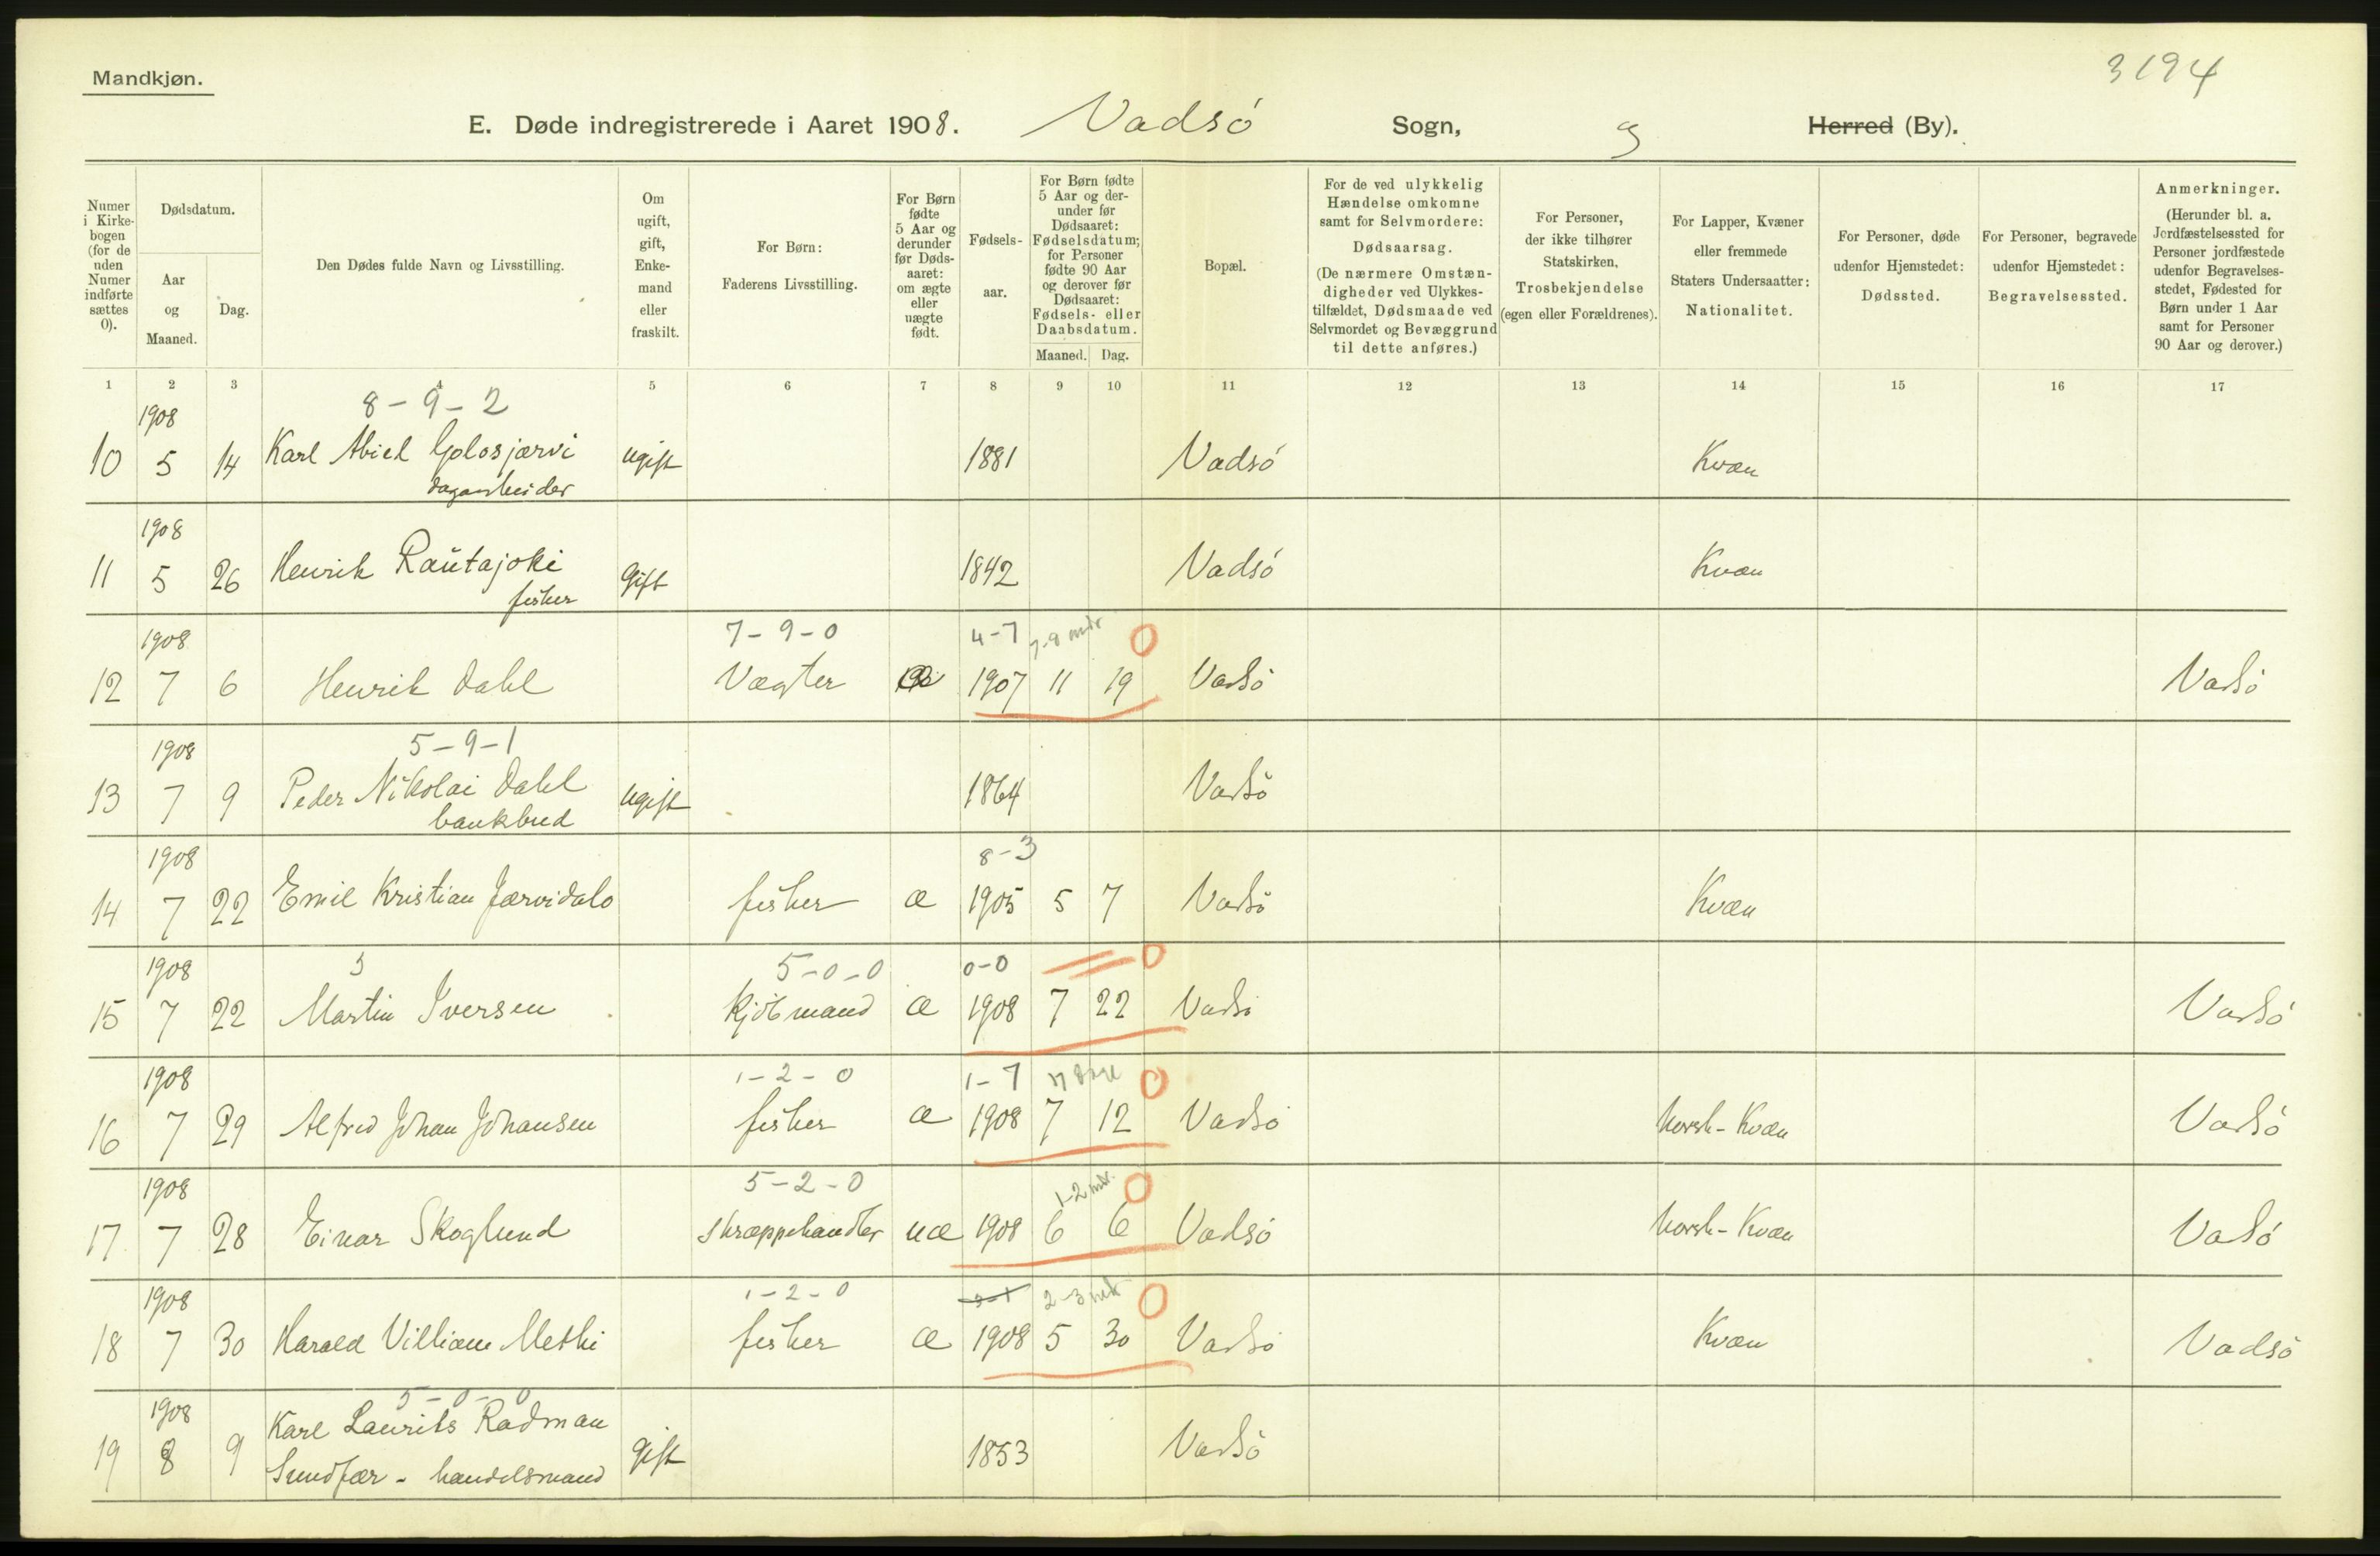 Mandkjøn.
3194
E. Døde indregistrerede i Aaret 1908. Vadsö Sogn, Herred (By).
Numer i Kirkebogen (for de uden Numer indførte sættes 0).
Dødsdatum.
Aar og Maaned.
Dag.
Den Dødes fulde Navn og Livsstilling.
Om ugift, gift, Enkemand eller fraskilt.
For Børn: Faderens Livsstilling.
For Børn fødte 5 Aar og derunder før Dødsaaret: om ægte eller uægte født.
Fødselsaar.
For Børn fødte 5 Aar og derunder før Dødsaaret: Fødselsdatum; for Personer fødte 90 Aar og derover før Dødsaaret: Fødsels- eller Daabsdatum.
Maaned. Dag.
Bopæl.
For de ved ulykkelig Hændelse omkomne samt for Selvmordere: Dødsaarsag. (De nærmere Omstændigheder ved Ulykkestilfældet, Dødsmaade ved Selvmordet og Bevæggrund til dette anføres.)
For Personer, der ikke tilhører Statskirken, Trosbekjendelse (egen eller Forældrenes).
For Lapper, Kvæner eller fremmede Staters Undersaatter: Nationalitet.
For Personer, døde udenfor Hjemstedet: Dødssted.
For Personer, begravede udenfor Hjemstedet: Begravelsessted.
Anmerkninger. (Herunder bl. a. Jordfæstelsessted for Personer jordfæstede udenfor Begravelsesstedet, Fødested for Børn under 1 Aar samt for Personer 90 Aar og derover.)
1 2 3 4 5 6 7 8 9 10 11 12 13 14 15 16 17
1908 8-9-2
10 5 14 Karl Abiel Golosjærvi ugift 1881 Vadsö Kvæn
dagarbeider
1908
11 5 26 Henrik Rautajoki gift 1842 Vadsö Kvæn
fisker
1908 7-9-0 4-7 7-8 mdr 0
12 7 6 Henrik Dahl Vægter 1907 11 19 Vadsö Vadsö
1908 5-9-1
13 7 9 Peder Nikolai Dahl ugift 1864 Vadsö
bankbud
1908 8-3
14 7 22 Emil Kristian Jærvidalo fisker æ 1905 5 7 Vadsö Kvæn
1908 5 5-0-0 0-0 0
15 7 22 Martin Iversen Kjöbmand æ 1908 7 22 Vadsö Vadsö
1908 1-2-0 1-7 0
16 7 29 Alfred Johan Johansen fisker æ 1908 7 12 Vadsö Norsk-Kvæn Vadsö
1908 5-2-0 1-2 mdr. 0
17 7 28 Einar Skoglund skræppehandler uæ 1908 6 6 Vadsö Norsk-Kvæn Vadsö
1908 1-2-0 2-3 mdr 0
18 7 30 Harald Villiam Methi fisker æ 1908 5 30 Vadsö Kvæn Vadsö
1908 5-0-0
Karl Laurits Radman
19 8 9 Sundfær - handelsmand gift 1853 Vadsö